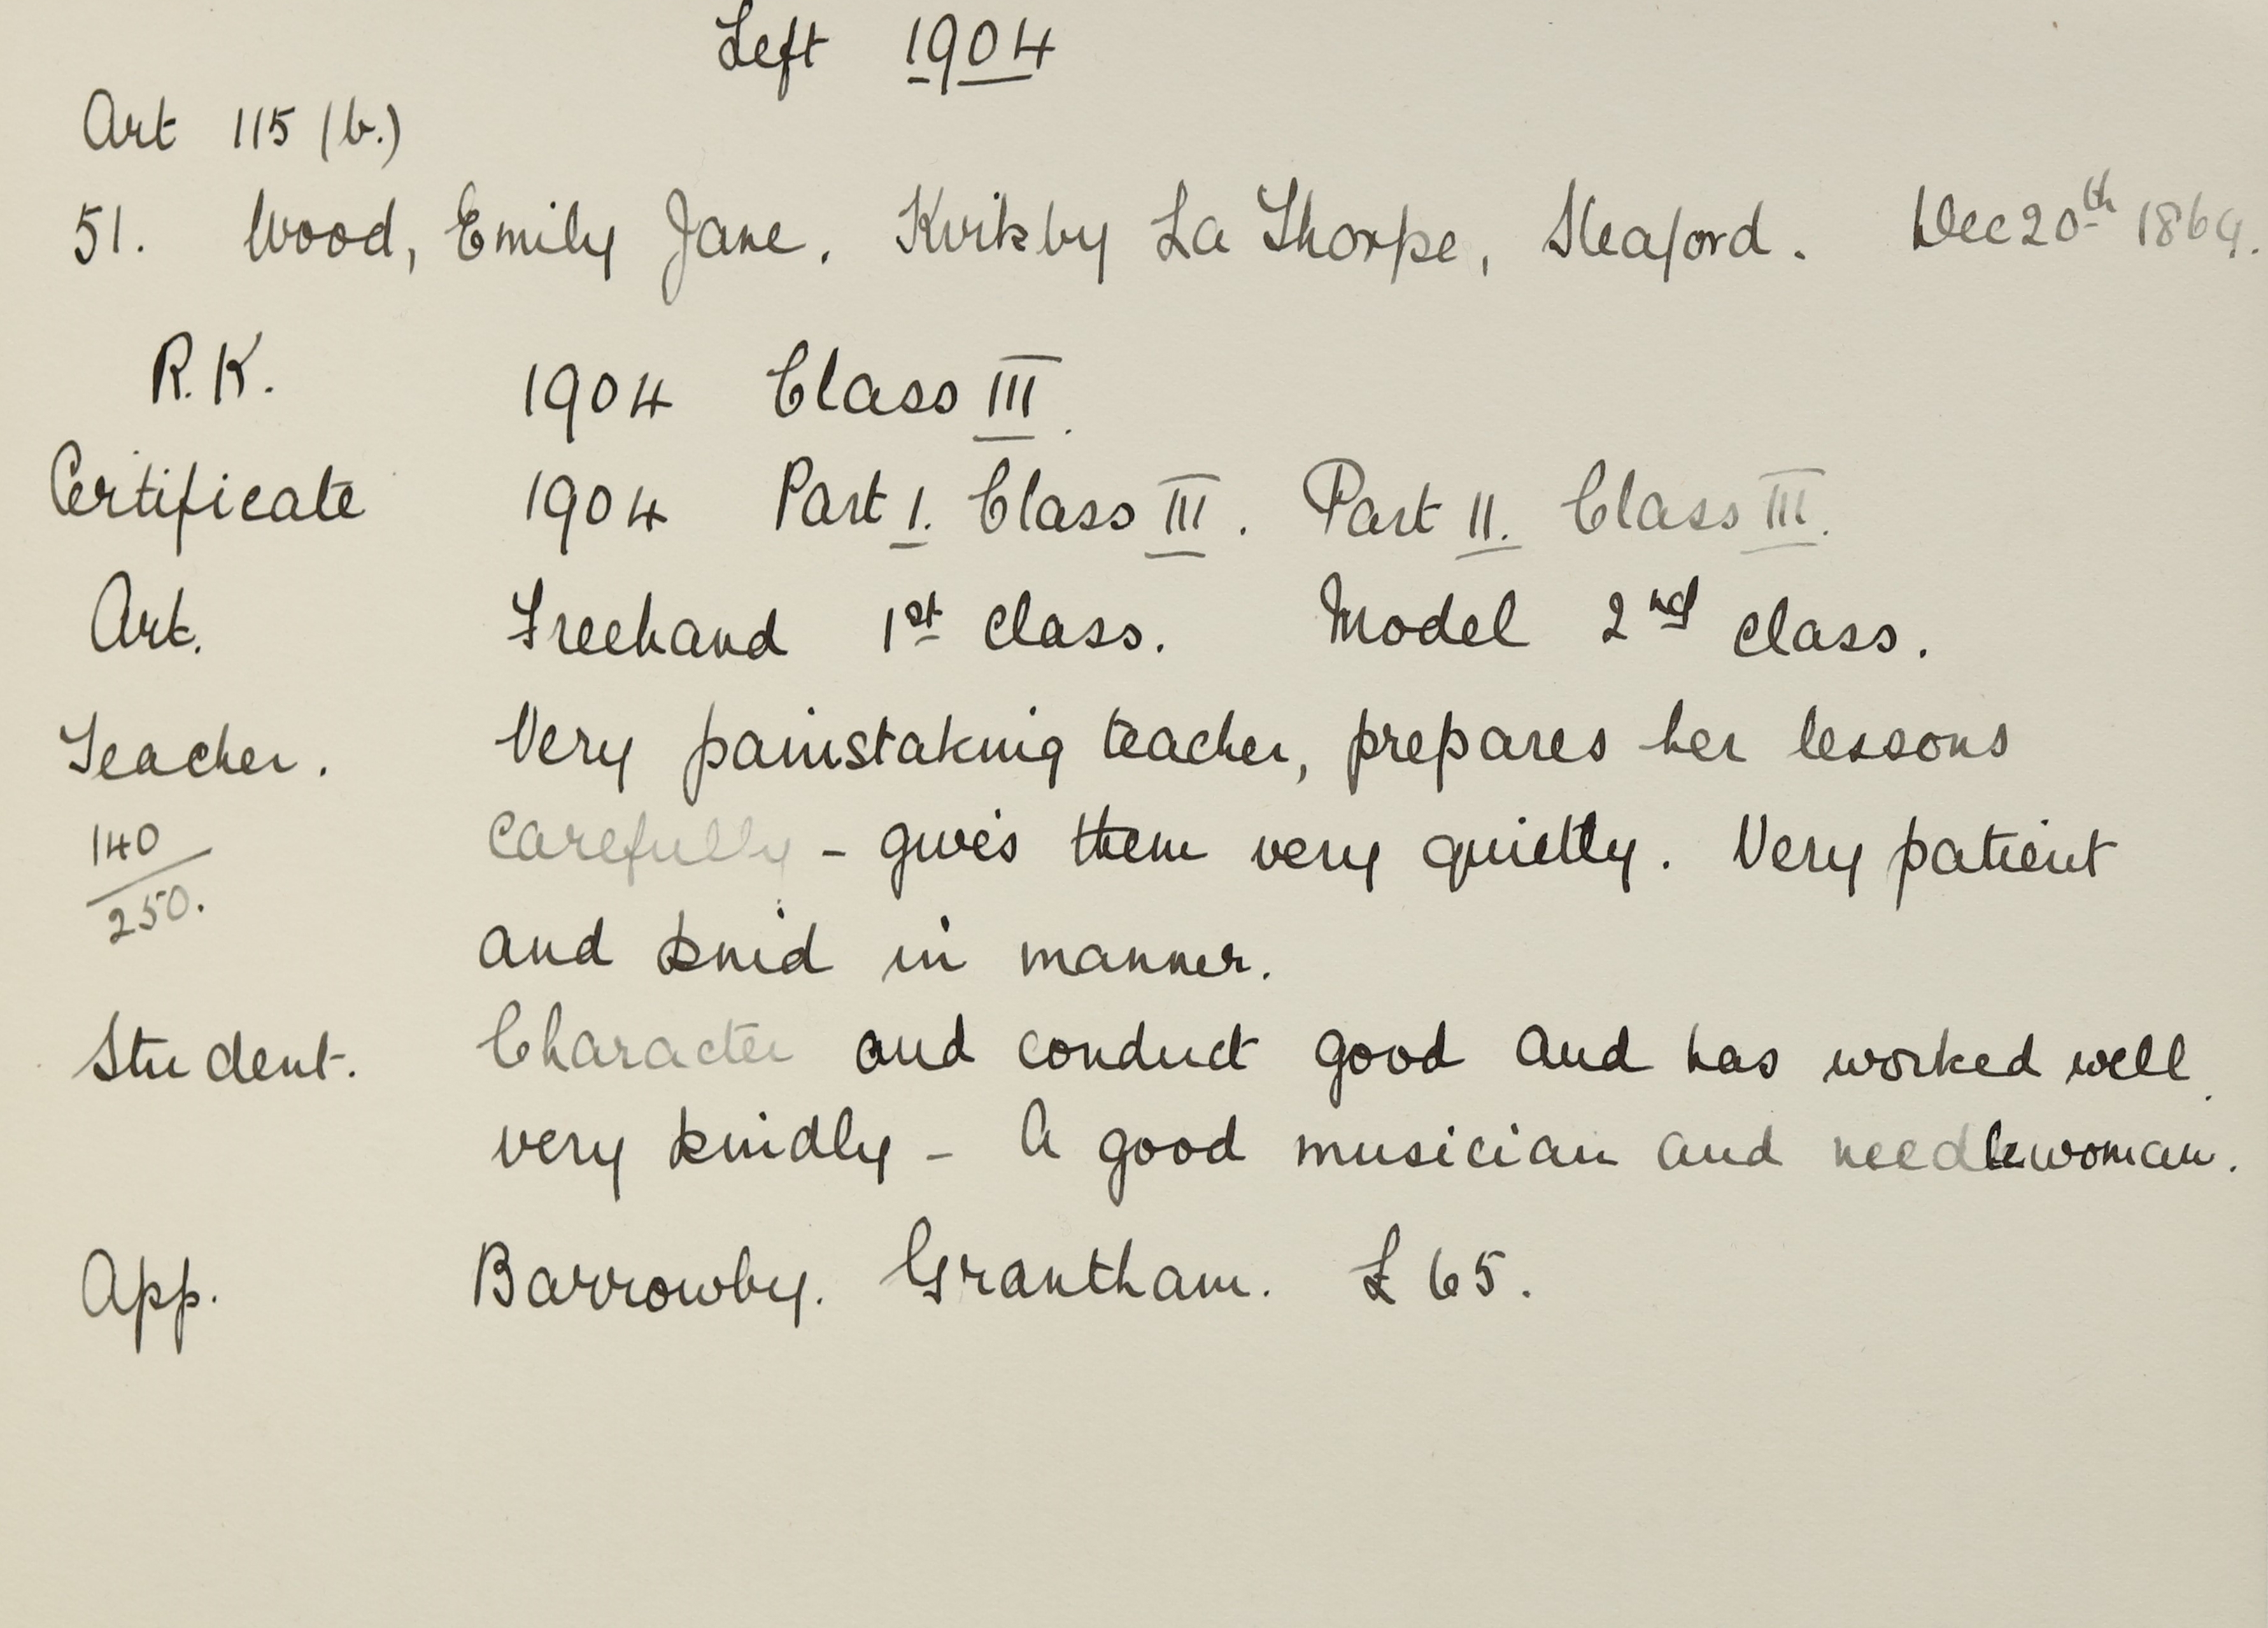 Left 1904
Art 115 (b.)
51. Wood, Emily Jane. Kirkby La Thorpe, Sleaford. Dec 20th 1869.
R.K. 1904 Class III.
Certificate 1904 Part I. Class III. Part II. Class III.
Art. Freehand 1st class. Model 2nd class.
Teacher. Very painstaking teacher, prepares her lessons
140/250. carefully - gives them very quietly. Very patient
and kind in manner.
Student. Character and conduct good and has worked well.
very kindly - A good musician and needlewoman.
App. Barrowby. Grantham. £65.